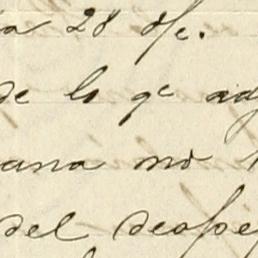 a 28 d/c.
de lo qe ad
ana no
del despe